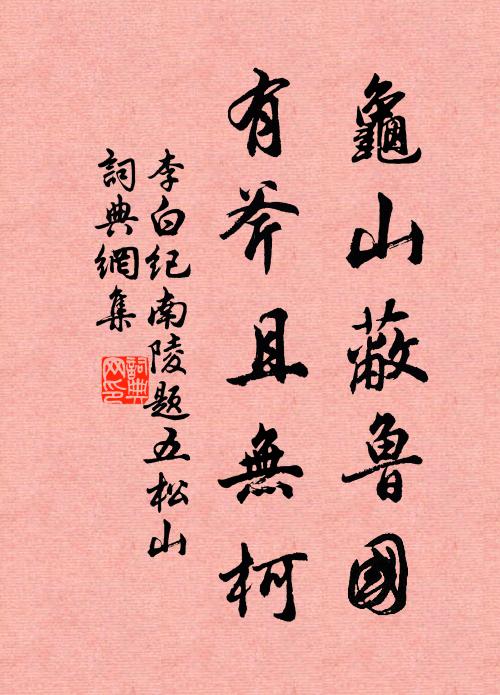 龜山蔽魯國
有斧且無柯
李白紀南陵題五松山
詞典網集
詞典
网印